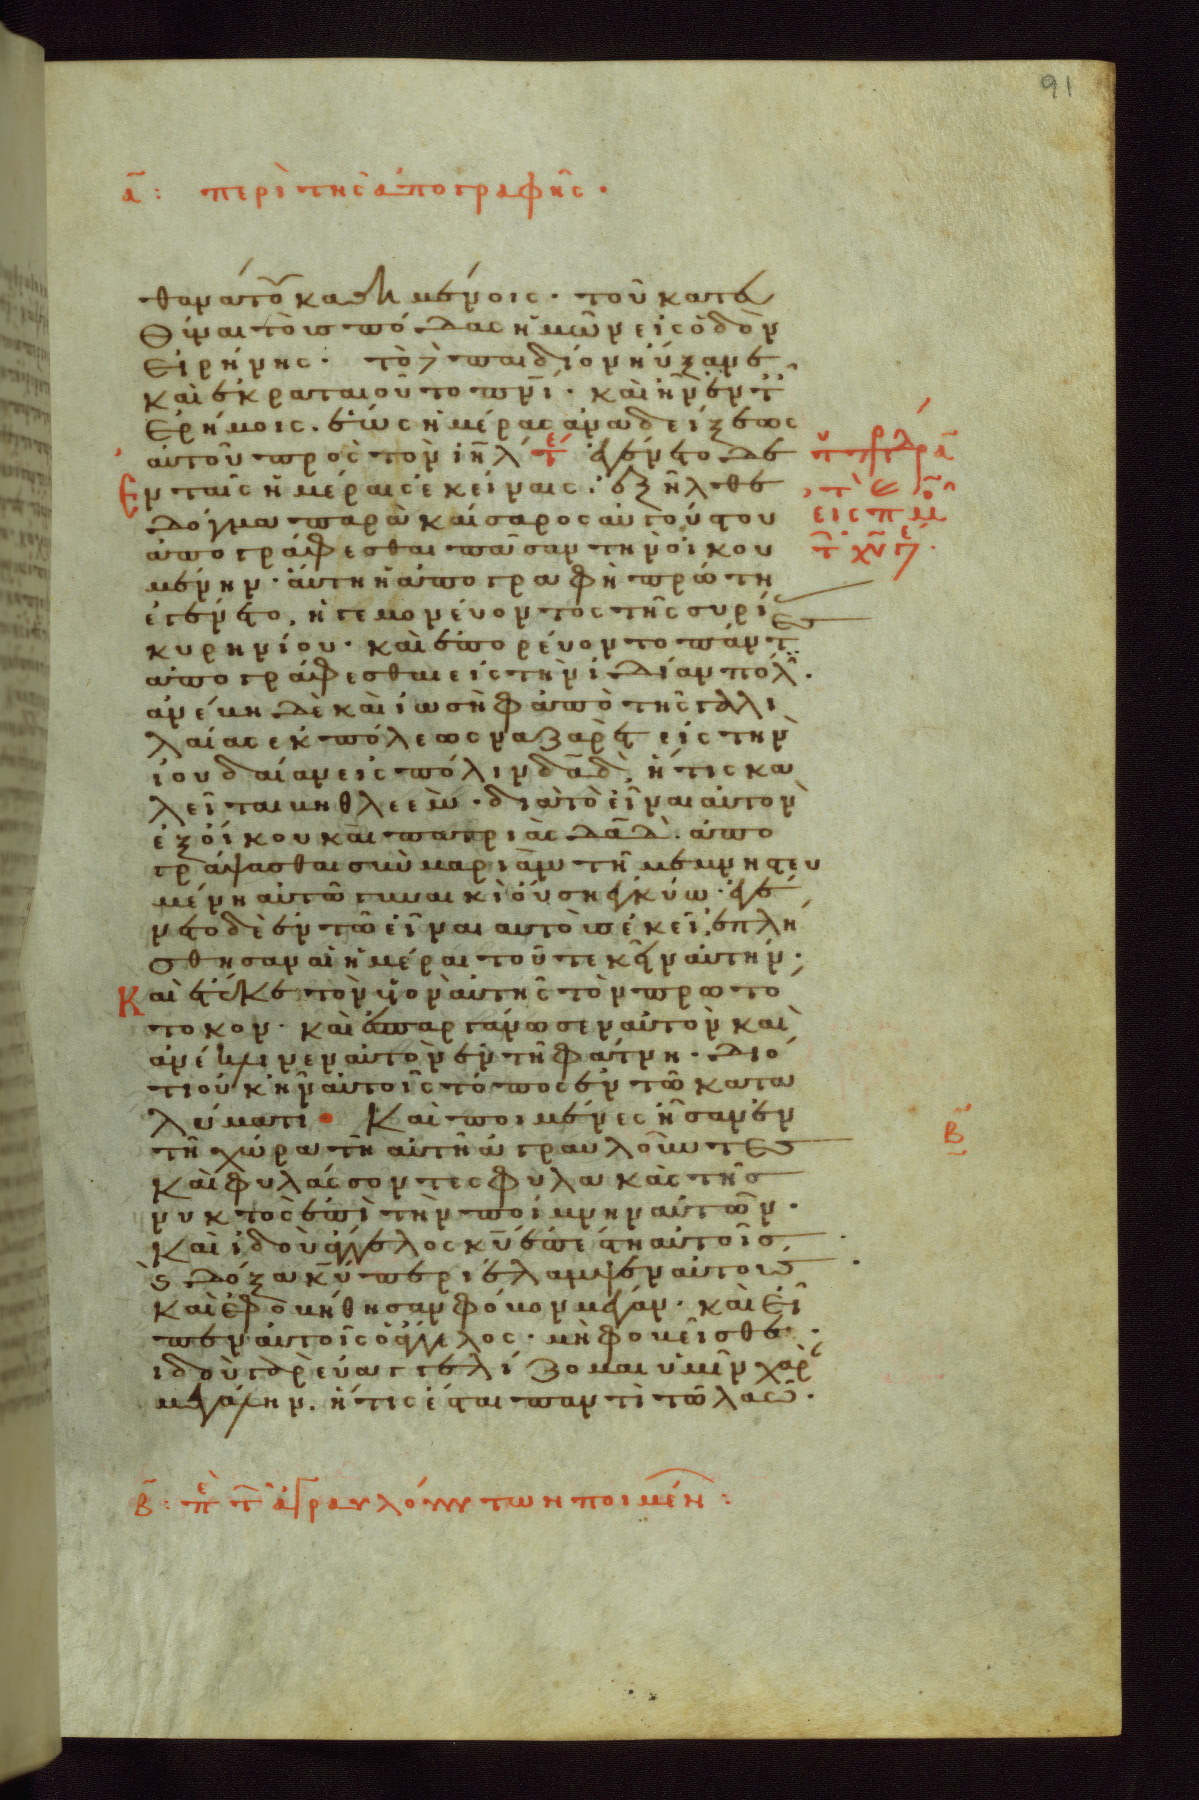 91
α̅: περὶ τῆς ἀπογραφῆς.
θανάτου καθημένοις. τοῦ κατευ
θύναι τοὺς πόδας ἡμῶν εἰς ὁδὸν
εἰρήνης. τὸ δὲ παιδίον ηὔξανε
καὶ ἐκραταιοῦτο πν̅ι. καὶ ἦν ἐν τ
ἐρήμοις. ἕως ἡμέρας ἀναδείξεως
αὐτοῦ πρὸς τὸν ιη̅λ ἐγένετο δὲ
Εν ταῖς ἡμέραις ἐκείναις. ἐξῆλθε
δόγμα παρὰ καίσαρος αὐγούστου
ἀπογράφεσθαι πᾶσαν τὴν οἰκου
μένην. αὕτη ἡ ἀπογραφὴ πρώτη
ἐγένετο, ἡγεμονεύοντος τῆς συρίας
κυρηνίου. καὶ ἐπορεύοντο πάντες
ἀπογράφεσθαι εἰς τὴν ἰδίαν πόλ.
ἀνέβη δὲ καὶ ἰωσὴφ ἀπὸ τῆς γαλι
λαίας ἐκ πόλεως ναζαρὲτ εἰς τὴν
ἰουδαίαν εἰς πόλιν δα̅δ, ἥτις κα
λεῖται βηθλεέμ. διὰ τὸ εἶναι αὐτὸν
ἐξ οἴκου καὶ πατριᾶς δα̅δ. ἀπο
γράψασθαι σὺν μαριὰμ τῇ μεμνηστευ
μένη αὐτῶ γυναικὶ οὔση ἐγκύω. ἐγέ
νετο δὲ ἐν τῶ εἶναι αὐτοὺς ἐκεῖ, ἐπλή
σθησαν αἱ ἡμέραι τοῦ τεκεῖν αὐτήν.
Καὶ ἔτεκε τὸν υἱὸν αὐτῆς τὸν πρωτό
τοκον. καὶ ἐσπαργάνωσεν αὐτὸν καὶ
ἀνέκλινεν αὐτὸν ἐν τῆ φάτνη. διό
τι οὐκ ἦν αὐτοῖς τόπος ἐν τῶ κατα
λύματι Καὶ ποιμένες ἦσαν ἐν
τῆ χώρα τῆ αὐτῆ ἀγραυλοῦντες
καὶ φυλάσσοντες φυλακὰς τῆς
νυκτὸς ἐπὶ τὴν ποίμνην αὐτῶν.
Καὶ ἰδοὺ ἄγγελος κυ̅ ἐπέστη αὐτοῖς,
ϛ δόξα κυ̅ περιέλαμψεν αὐτοὺς
καὶ ἐφοβήθησαν φόβον μέγαν. καὶ εἶ
πεν αὐτοῖς ὁ ἄγγελος. μὴ φοβεῖσθε.
ἰδοὺ γὰρ εὐαγγελίζομαι ὑμῖν χαρὰν
μεγάλην. ἥτις ἔσται παντὶ τῶ λαῶ.
β̅
β̅: πε τ ἀγραυλούντων ποιμέν: